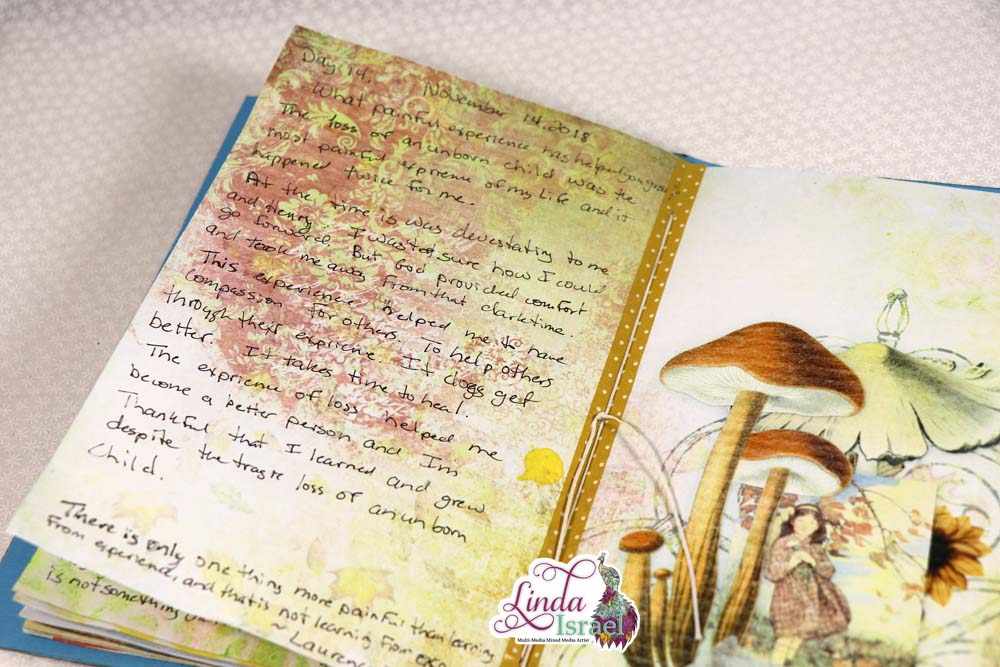 Day 14. November 14, 2018
What painful experience has helped you grow?
The loss of an unborn child was the
most painful exprience of my life and it
happened twice for me.
At the time is was devestating to me
and Henry. I wasted sure how I could
go forward. But God provided comfort
and took me away from that dark time.
This experience helped me to have
compassion for others. To help others
through their exprience. It doggs get
better. It takes time to heal.
The exprience of loss helped me
become a better person and Im
Thankful that I learned and grew
despite the tragic loss of an unborn
Child.
There is only one thing more painful then learning
from experience, and that is not learning from
is not something
~ Laurence
Linda
Israel
Multi-Media Mixed Media Artist